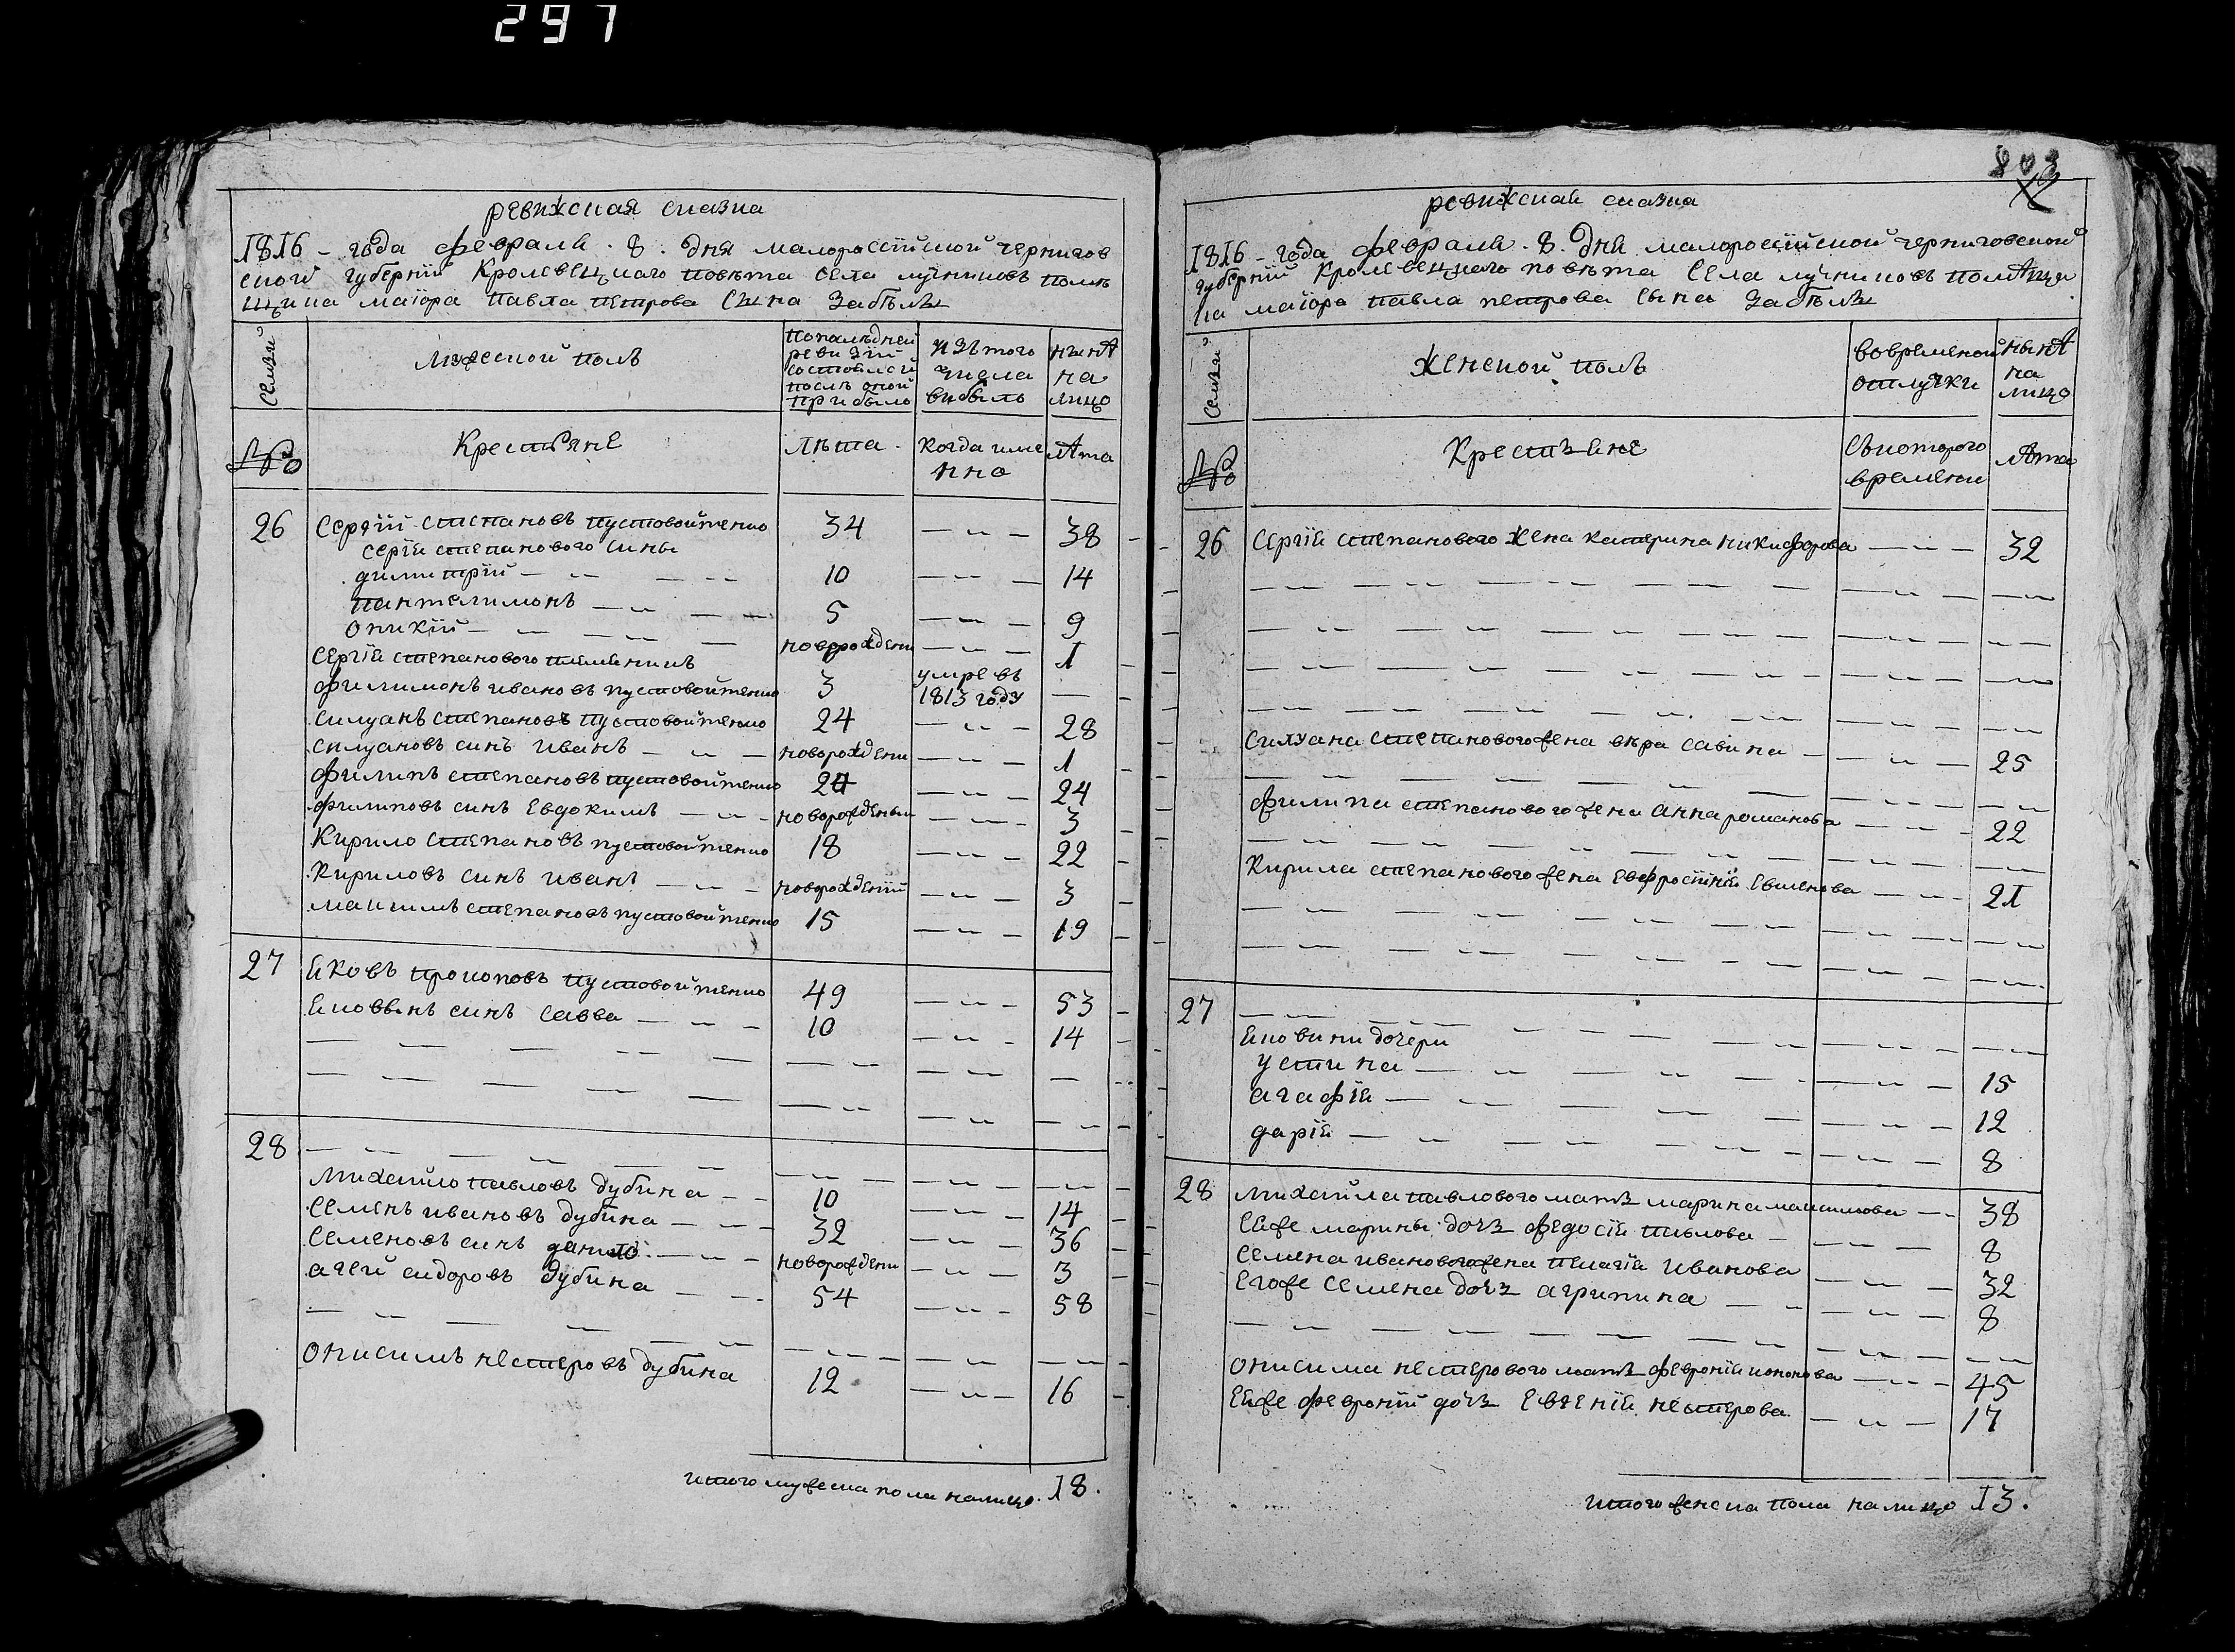 297
ревижская сказка
1816 - года февраля . 8 . дня малороссійской чернигов
ской губерніи Кролевецкаго повѣта села лучниковъ помѣ
щика маіора Павла петрова сына Забѣлы
Семьи
Мужеской полъ
Попаслѣдней
ревизіи
состояло и
послѣ оной
прибыло
изъ того
числа
выбыло
нынѣ
на
лицо
№
Крестьяне
Лѣта
Когда име
нно
лѣта
26 Сергій степановъ пустовойтенко 34 38
Сергія степанового сины
димитрій 10 14
пантелимонъ 5 9
оникій новорожден 1
Сергія степанового племѣнникъ
филимонъ ивановъ пустовойтенко 3 умре въ 1813 году
силуанъ степановъ пустовойтенко 24 28
силуановъ синъ иванъ новорожден 1
филипъ степановъ пустовойтенко 20 24
филиповъ синъ Евдокимъ новорожденый 3
Кирило степановъ пустовойтенко 18 22
Кириловъ синъ иванъ новорожденій 3
максимъ степановъ пустовойтенко 15 19
27 Яковъ прокоповъ пустовойтенко 49 53
Яковвынъ синъ савва 10 14
28
Михайло павловъ дубина 10 14
Семенъ ивановъ дубина 32 36
Семеновъ синъ данило новорожден 3
агей сидоровъ дубина 54 58
онисимъ нестеровъ дубина 12 16
итого мужеска пола налицо. 18.
803
ревижская сказка
1816 - года февраля . 8 . дня малороссійской черниговской
губерніи Кролевецкаго повѣта села лучниковъ помѣщи
ка маіора павла петрова сына Забѣлы
Семьи
Женской полъ
вовременой
отлучки
нынѣ
на
лицо
№
Крестьяне
Съкоторого
времени
лѣта
26 Сергія степанового жена катерина никифорова 32
Силуана степанового жена вѣра савина 25
филипа степанового жена анна романова 22
Кирила степанового жена евфросінія Евменова 21
27
Яковини дочери
устина 15
агафія 12
дарія 8
28 Михайла павлового мать марина максимова 38
Еяже марины дочь федосія павлова 8
Семена иванового жена пелагія иванова 32
Егоже семена дочь агрипина 8
онисима нестерового мать февронія кононова 45
Еяже февроніи дочь Евгенія нестерова 17
итого женска пола налицо 13.